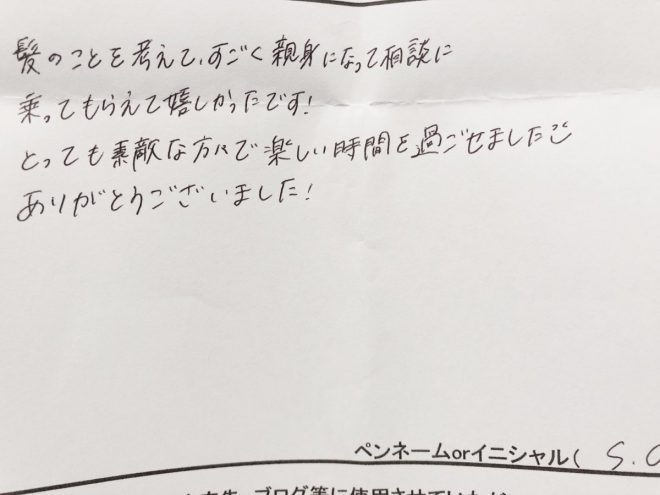 髪のことを考えて、すごく親身になって相談に
乗ってもらえて嬉しかったです!
とっても素敵な方々で楽しい時間を過ごせました
ありがとうございました!
ペンネームorイニシャル( S.
ブログ等に使用させていただ